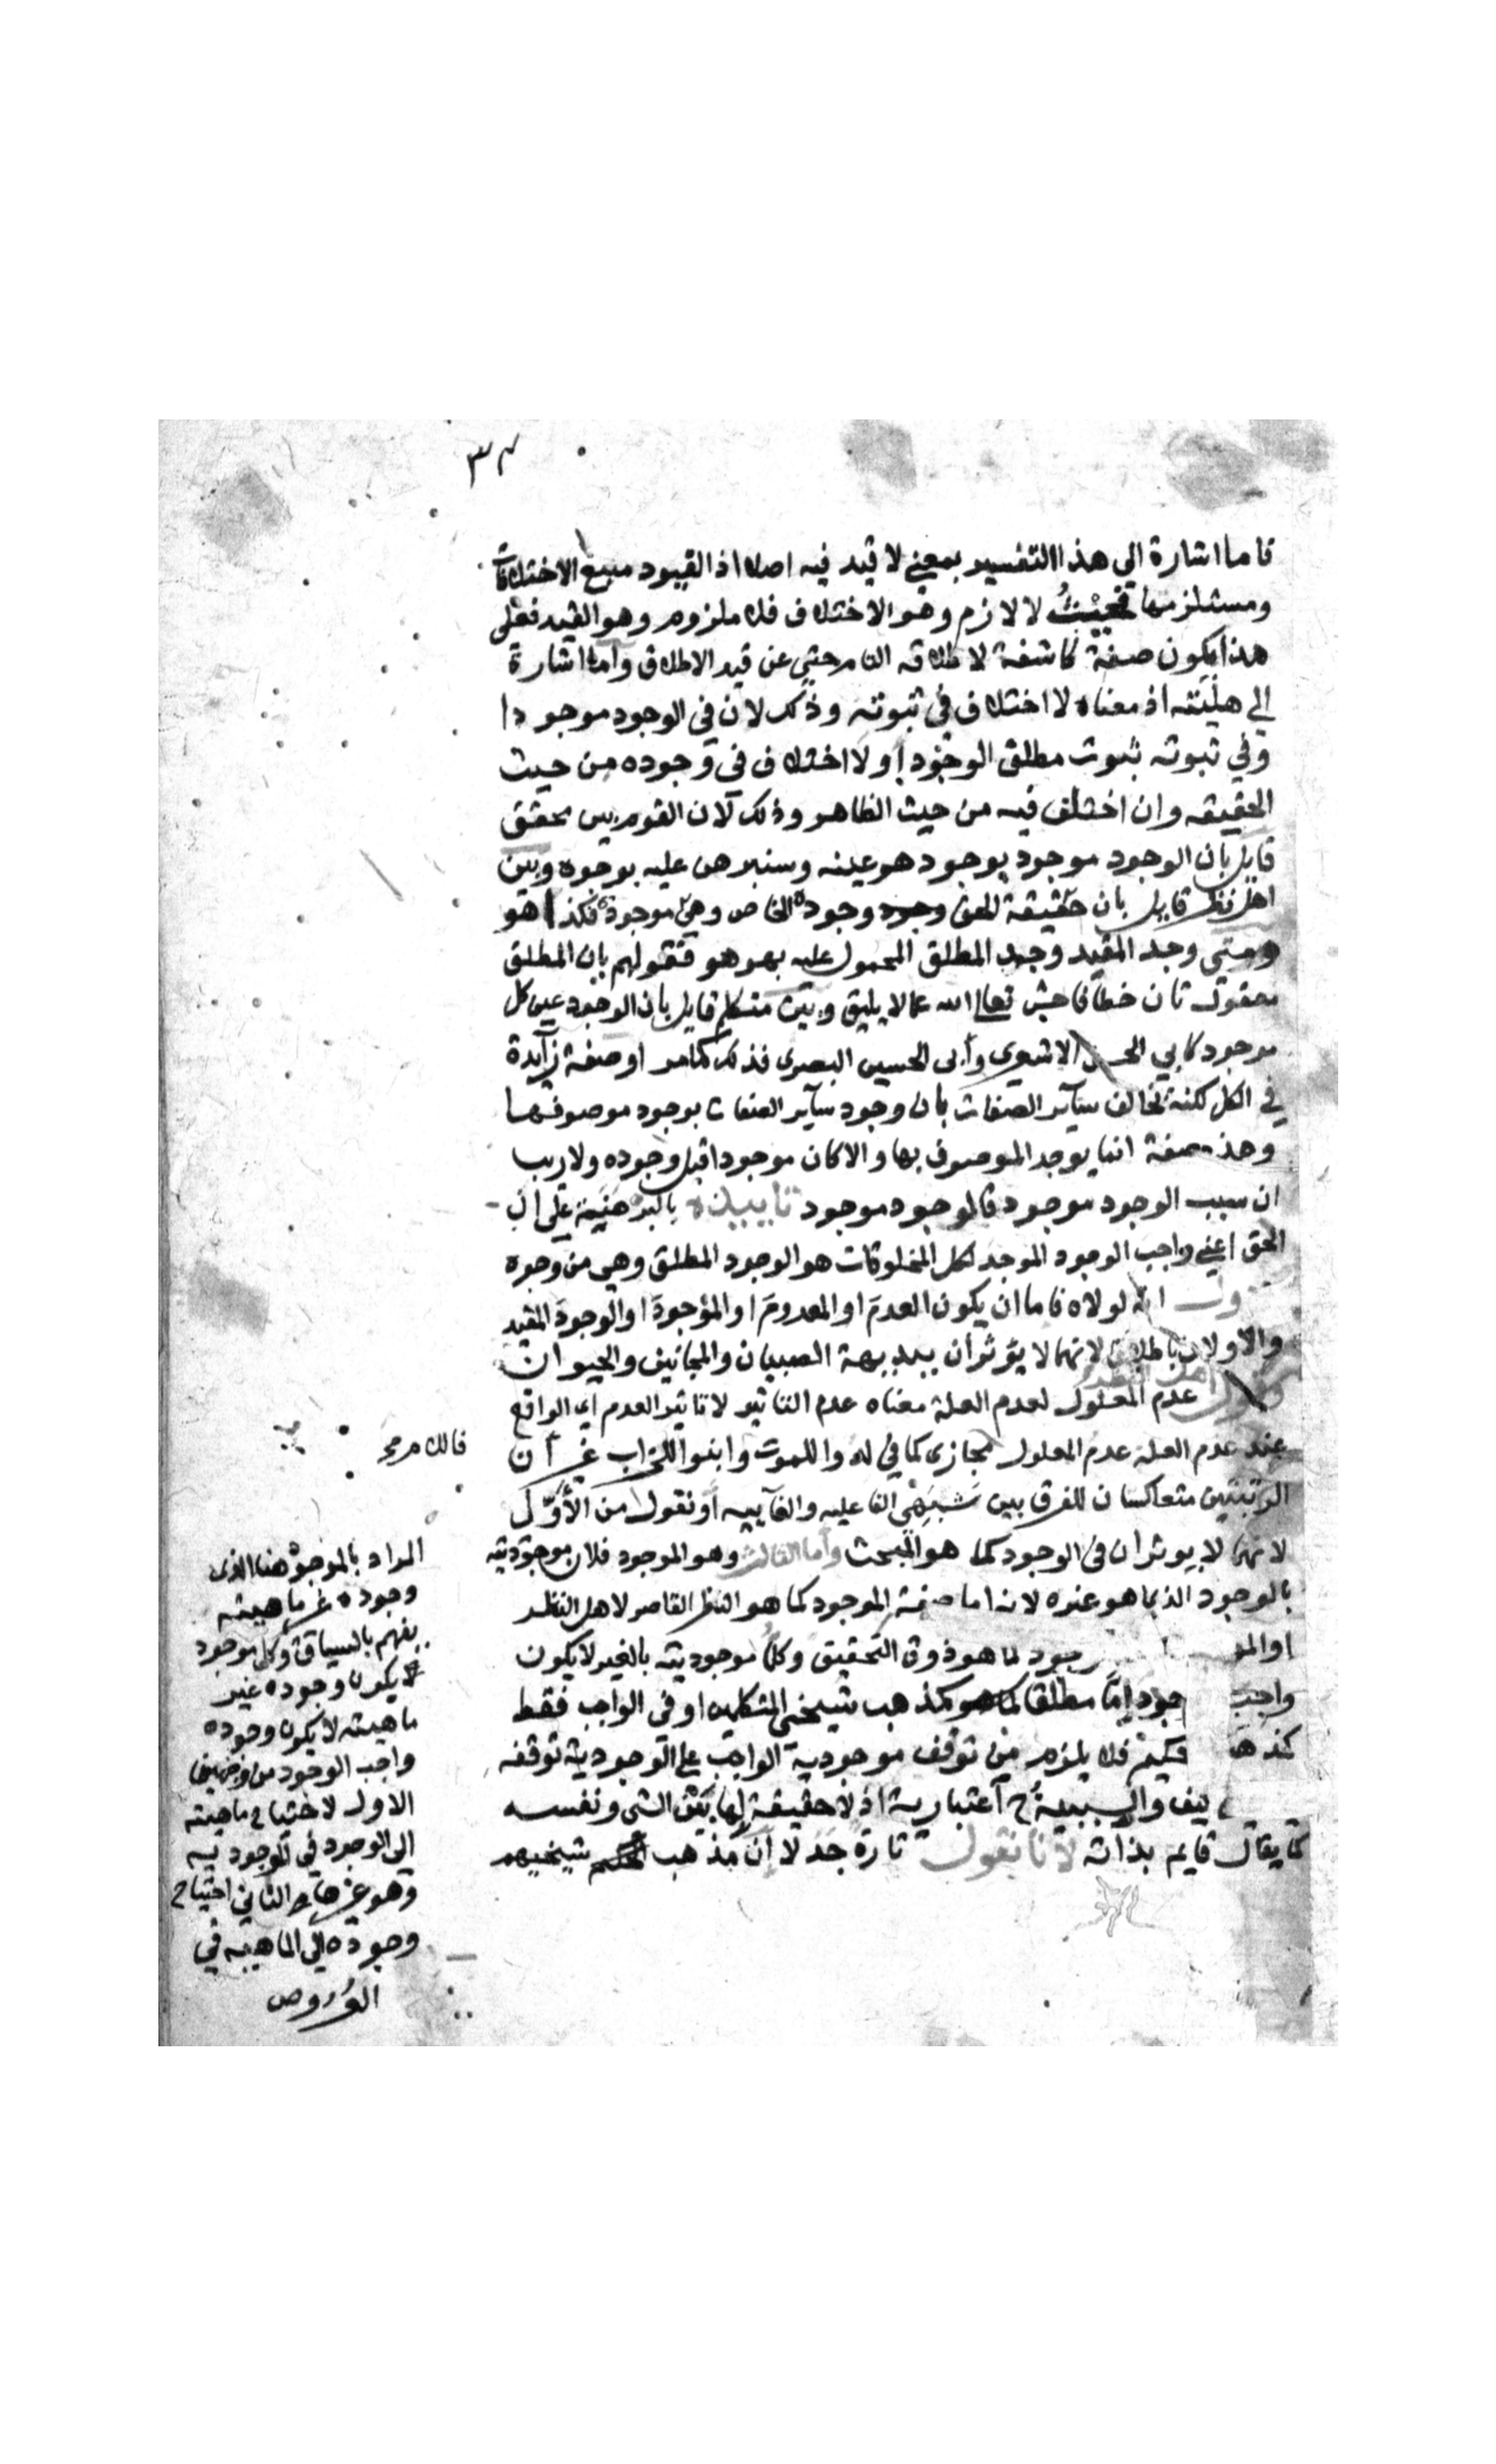 ٣٢
فاما اشارة الى هذا التفسير بمعنى لا قيد فيه اصلا اذ القيود منبع الاختلافات
ومستلزمها فحيث لا لازم وهو الاختلاف فلا ملزوم وهو القيد فعلى
هذا يكون صفة كاشفة لاطلاقه التام حتى عن قيد الاطلاق واما اشارة
الى هليته اذ معناه لا اختلاف في ثبوته وذلك لان في الوجود موجودا
وفي ثبوته ثبوت مطلق الوجود او لا اختلاف في وجوده من حيث
الحقيقه وان اختلف فيه من حيث الظاهر وذلك لان القوم بين محقق
قايل بان الوجود موجود بوجود هو عينه وسنبرهن عليه بوجوه وبين
اهل نظر قايل بان حقيقة الحق وجوده الخاص وهي موجودة فكذا هو
ومتى وجد المقيد وجد المطلق المحمول عليه بهو هو فقولهم بان المطلق
معقول ثان خطأ فاحش تعالى الله عما لا يليق وبين متكلم قايل بان الوجود عين كل
موجود كابي الحسن الاشعري وأبى الحسين البصرى فذلك كما مر او صفة زآيدة
في الكل لكنه تخالف سآير الصفات بان وجود سآير الصفات بوجود موصوفها
وهذه صفة انما يوجد الموصوف بها والا كان موجودا قبل وجوده ولا ريب
ان سبب الوجود موجود فالوجود موجود بالبرهنية على ان
الحق اعني واجب الوجود الموجد لكل المخلوقات هو الوجود المطلق وهي من وجوه
انه لولاه فاما ان يكون العدم او المعدوم او الموجود او الوجود المقيد
والاولان باطلان لانهما لا يؤثران ببديهة الصبيان والمجانين والحيوان
عدم المعلول لعدم العلة معناه عدم التاثير لا تاثير العدم اي الواقع
عند عدم العلة عدم المعلول مجازى كما في لدوا للموت وابنوا للخراب غير ان
الرتبتين متعاكستان للفرق بين الفاعليه والغآييه او نقول من الأوّل
لانهما لا يوثران فى الوجود كما هو المبحث وأما الثالث وهو الموجود فلان موجوديته
بالوجود الذي هو غيره لانه اما صفة الموجود كما هو النظر القاصر لاهل النظر
او الم‍ وجود لما هو ذوق التحقيق وكل موجوديته بالغير لا يكون
واجب جود إمّا مطلقا كمذهب المتكلمين او فى الواجب فقط
كمذهب فلا يلزم من توقف موجودية الواجب على الوجودية توقفه
والسببية ح اعتبارية اذ لا حقيقة لها بين الشى ونفسه
كما يقال قايم بذاته لانا نقول تارة جدلا ان مذهب شيخيهم
المراد بالموجود هنا الذى
وجوده غير ماهيته
يفهم بالسياق وكل موجود
يكون وجوده غير
ماهيته لا يكون وجوده
واجب الوجود من وجهين
الاول لاحتياج ماهيته
الى الوجود في الموجوديه
وهو غيرها والثاني احتياج
وجوده الى الماهيه في
العروض